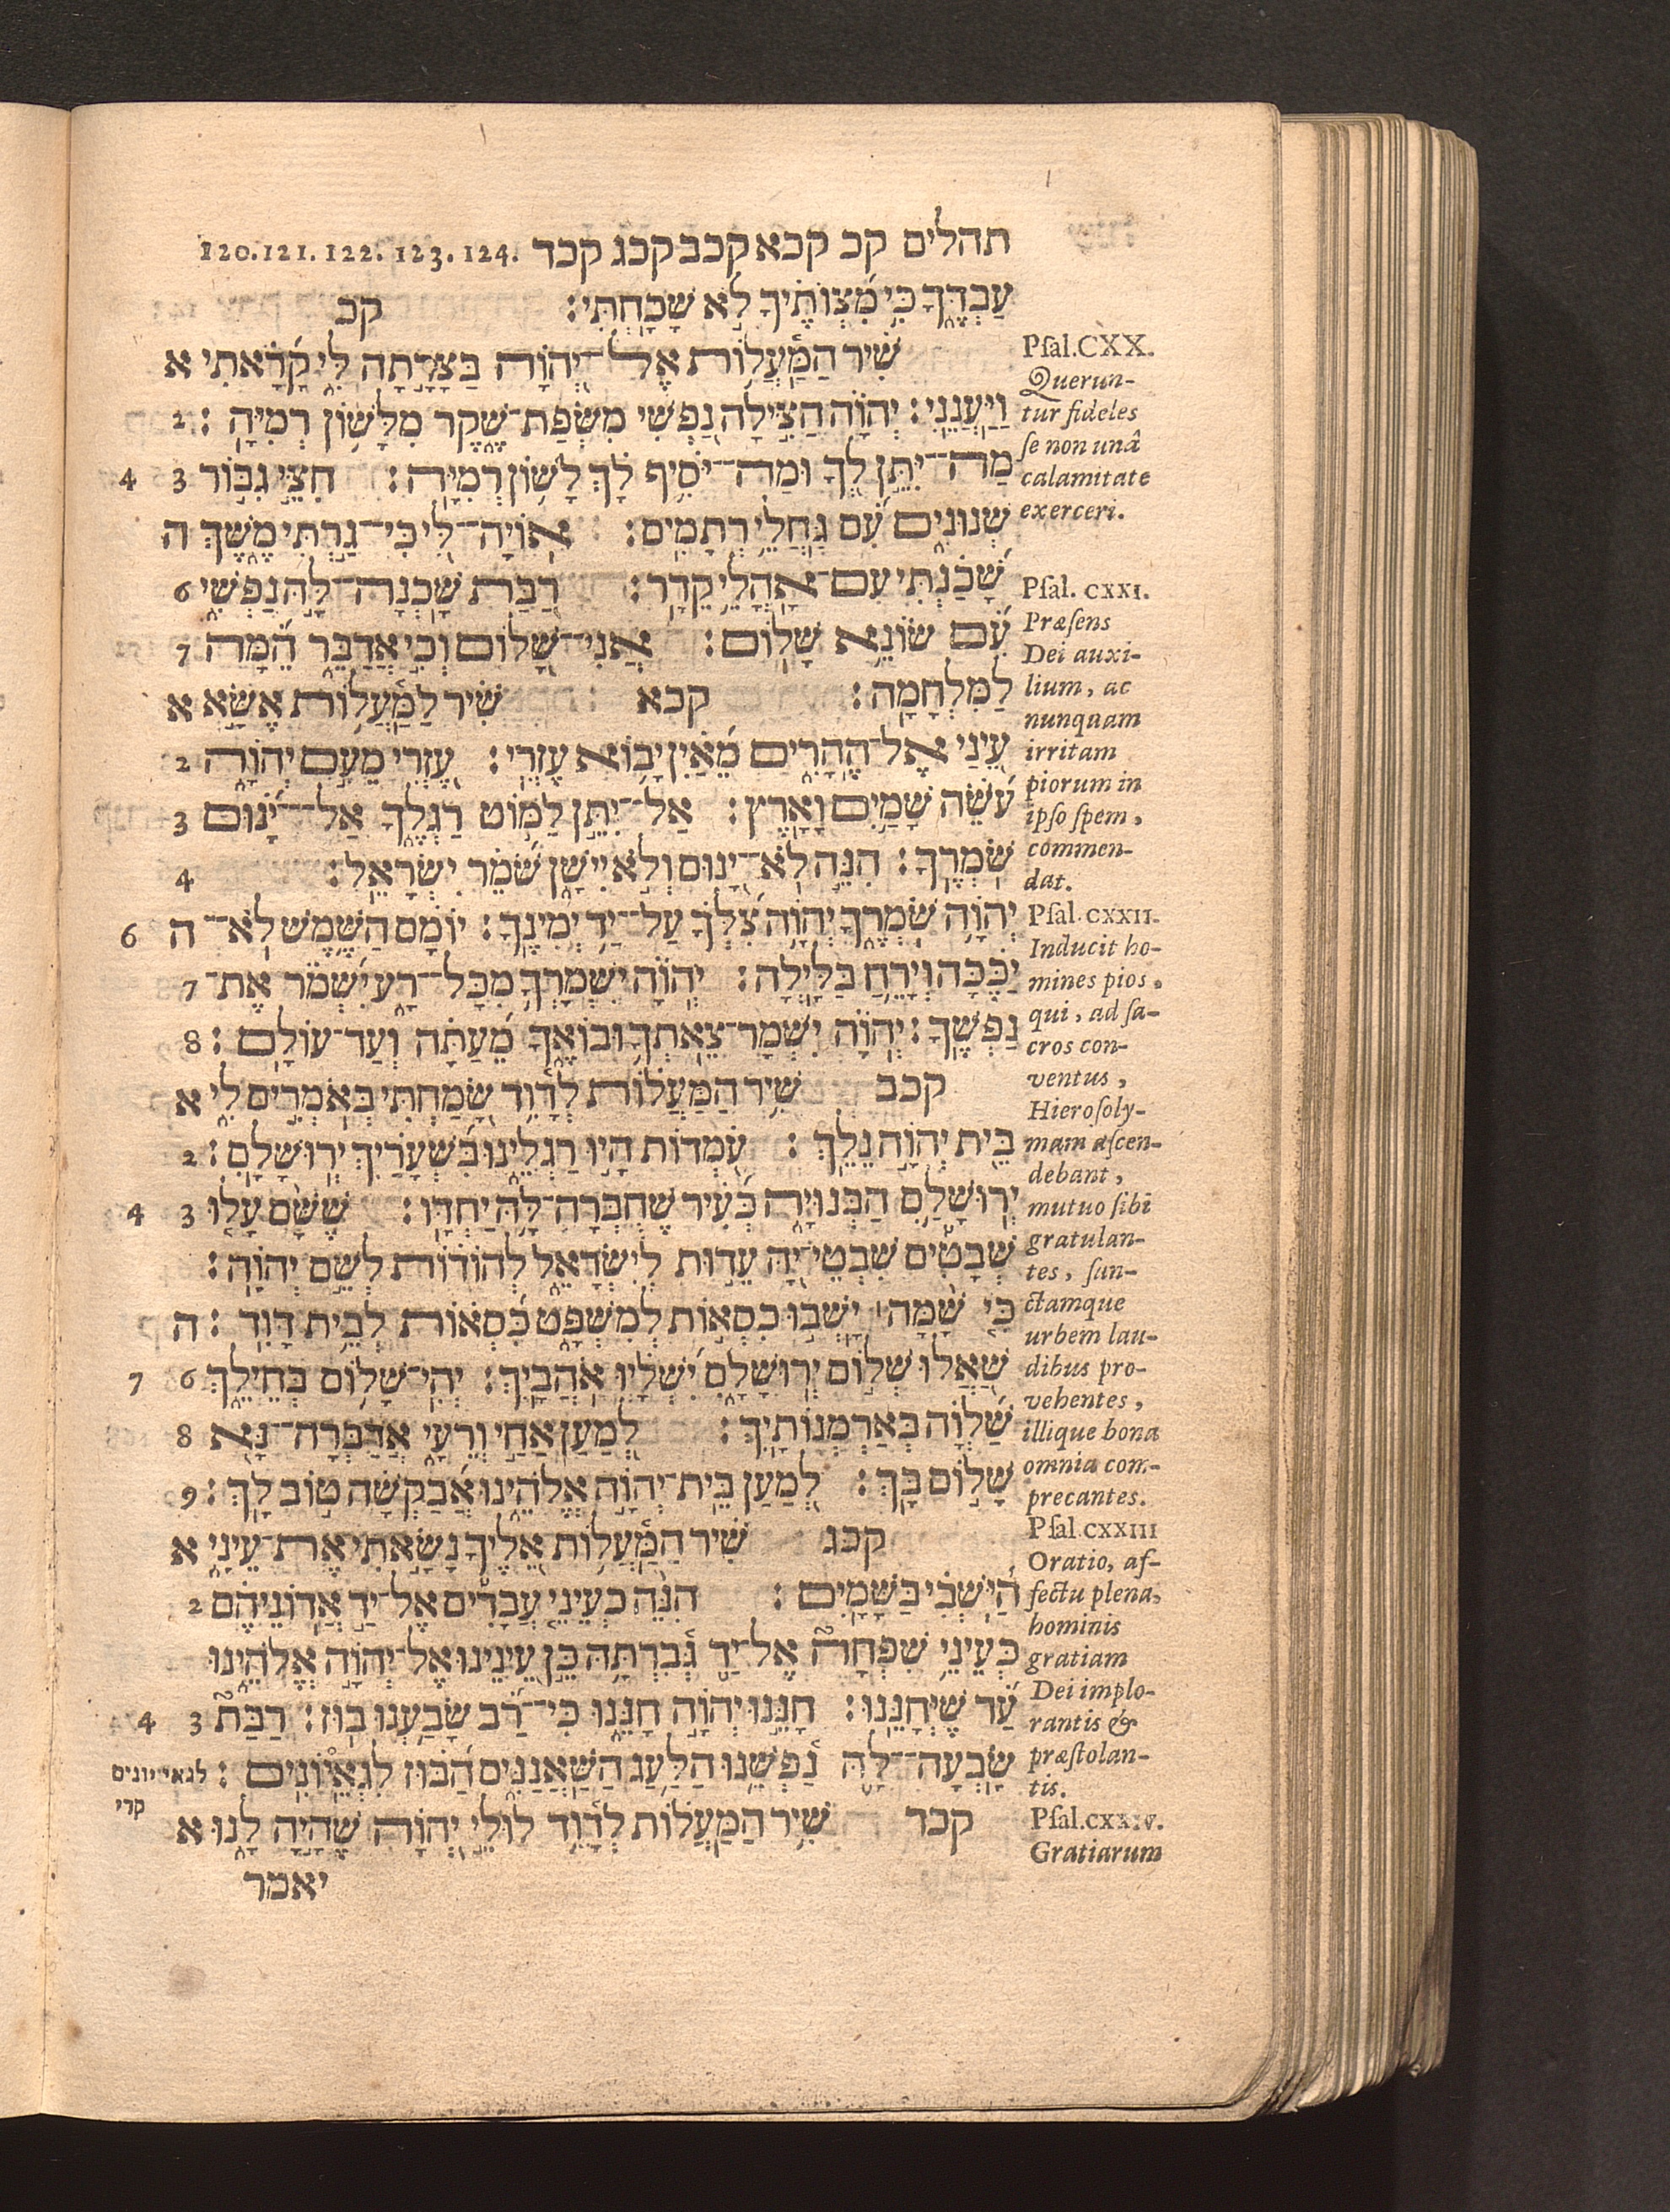 תהלים קכ קכא קכב קכג קכד 120.121.122.123.124.
עַבְדֶּךָ כִּי מִצְוֺתֶיךָ לֹא שָׁכָחְתִּי׃
קכ
שִׁיר הַמַּעֲלוֹת אֶל־יְהוָֹה בַּצָּרָתָה לִּי קָרָאתִי א
וַיַּעֲנֵנִי׃ יְהוָֹה הַצִּילָה נַפְשִׁי מִשְּׂפַת־שֶׁקֶר מִלָּשׁוֹן רְמִיָּה׃ 2
מַה־יִּתֵּן לְךָ וּמַה־יֹּסִיף לָךְ לָשׁוֹן רְמִיָּה׃ חִצֵּי גִבּוֹר 3 4
שְׁנוּנִים עִם גַּחֲלֵי רְתָמִים׃ אוֹיָה־לִי כִּי־גַרְתִּי מֶשֶׁךְ ה
שָׁכַנְתִּי עִם־אָהֳלֵי קֵדָר׃ רַבַּת שָׁכְנָה־לָּהּ נַפְשִׁי 6
עִם שׂוֹנֵא שָׁלוֹם׃ אֲנִי־שָׁלוֹם וְכִי אֲדַבֵּר הֵמָּה 7
לַמִּלְחָמָה׃ קכא שִׁיר לַמַּעֲלוֹת אֶשָּׂא א
עֵינַי אֶל־הֶהָרִים מֵאַיִן יָבוֹא עֶזְרִי׃ עֶזְרִי מֵעִם יְהוָֹה 2
עֹשֵׂה שָׁמַיִם וָאָרֶץ׃ אַל־יִתֵּן לַמּוֹט רַגְלֶךָ אַל־יָנוּם 3
שֹׁמְרֶךָ׃ הִנֵּה לֹא־יָנוּם וְלֹא יִישָׁן שֹׁמֵר יִשְׂרָאֵל׃ 4
יְהוָֹה שֹׁמְרֶךָ יְהוָֹה צִלְּךָ עַל־יַד יְמִינֶךָ׃ יוֹמָם הַשֶּׁמֶשׁ לֹא־ ה 6
יַכֶּכָּה וְיָרֵחַ בַּלָּיְלָה׃ יְהוָֹה יִשְׁמָרְךָ מִכָּל־רָע יִשְׁמֹר אֶת־ 7
נַפְשֶׁךָ׃ יְהוָֹה יִשְׁמָר־צֵאתְךָ וּבוֹאֶךָ מֵעַתָּה וְעַד־עוֹלָם׃ 8
קכב שִׁיר הַמַּעֲלוֹת לְדָוִד שָׂמַחְתִּי בְּאֹמְרִים לִי א
בֵּית יְהוָֹה נֵלֵךְ׃ עֹמְדוֹת הָיוּ רַגְלֵינוּ בִּשְׁעָרַיִךְ יְרוּשָׁלָםִ׃ 2
יְרוּשָׁלַםִ הַבְּנוּיָה כְּעִיר שֶׁחֻבְּרָה־לָּהּ יַחְדָּו׃ שֶׁשָּׁם עָלוּ 3 4
שְׁבָטִים שִׁבְטֵי־יָהּ עֵדוּת לְיִשְׂרָאֵל לְהוֹדוֹת לְשֵׁם יְהוָֹה׃
כִּי שָׁמָּה יָשְׁבוּ כִסְאוֹת לְמִשְׁפָּט כִּסְאוֹת לְבֵית דָּוִד׃ ה
שַׁאֲלוּ שְׁלוֹם יְרוּשָׁלָםִ יִשְׁלָיוּ אֹהֲבָיִךְ׃ יְהִי־שָׁלוֹם בְּחֵילֵךְ 6 7
שַׁלְוָה בְּאַרְמְנוֹתָיִךְ׃ לְמַעַן אַחַי וְרֵעָי אֲדַבְּרָה־נָּא 8
שָׁלוֹם בָּךְ׃ לְמַעַן בֵּית־יְהוָֹה אֱלֹהֵינוּ אֲבַקְשָׁה טוֹב לָךְ׃ 9
קכג שִׁיר הַמַּעֲלוֹת אֵלֶיךָ נָשָׂאתִי אֶת־עֵינַי א
הַיֹּשְׁבִי בַּשָּׁמָיִם׃ הִנֵּה כְעֵינֵי עֲבָדִים אֶל־יַד אֲדוֹנֵיהֶם 2
כְּעֵינֵי שִׁפְחָה אֶל־יַד גְּבִרְתָּהּ כֵּן עֵינֵינוּ אֶל־יְהוָֹה אֱלֹהֵינוּ
עַד שֶׁיְּחָנֵּנוּ׃ חָנֵּנוּ יְהוָֹה חָנֵּנוּ כִּי־רַב שָׂבַעְנוּ בוּז׃ רַבַּת 3 4
שָׂבְעָה־לָּהּ נַפְשֵׁנוּ הַלַּעַג הַשַּׁאֲנַנִּים הַבּוּז לִגְאֵיוֹנִים׃ לגאי יונים
קרי
קכד שִׁיר הַמַּעֲלוֹת לְדָוִד לוּלֵי יְהוָֹה שֶׁהָיָה לָנוּ א
יאמר
Psal.CXX.
Querun-
tur fideles
se non unâ
calamitate
exerceri.
Psal. CXXI.
Præsens
Dei auxi-
lium, ac
nunquam
irritam
piorum in
ipso spem,
commen-
dat.
Psal.CXXII.
Inducit ho-
mines pios,
qui, ad sa-
cros con-
ventus,
Hierosoly-
mam ascen-
debant,
mutuo sibi
gratulan-
tes, san-
ctamque
urbem lau-
dibus pro-
vehentes,
illique bona
omnia com-
precantes.
Psal.CXXIII
Oratio, af-
fectu plena,
hominis
gratiam
Dei implo-
rantis &
præstolan-
tis.
Psal.CXXIV.
Gratiarum